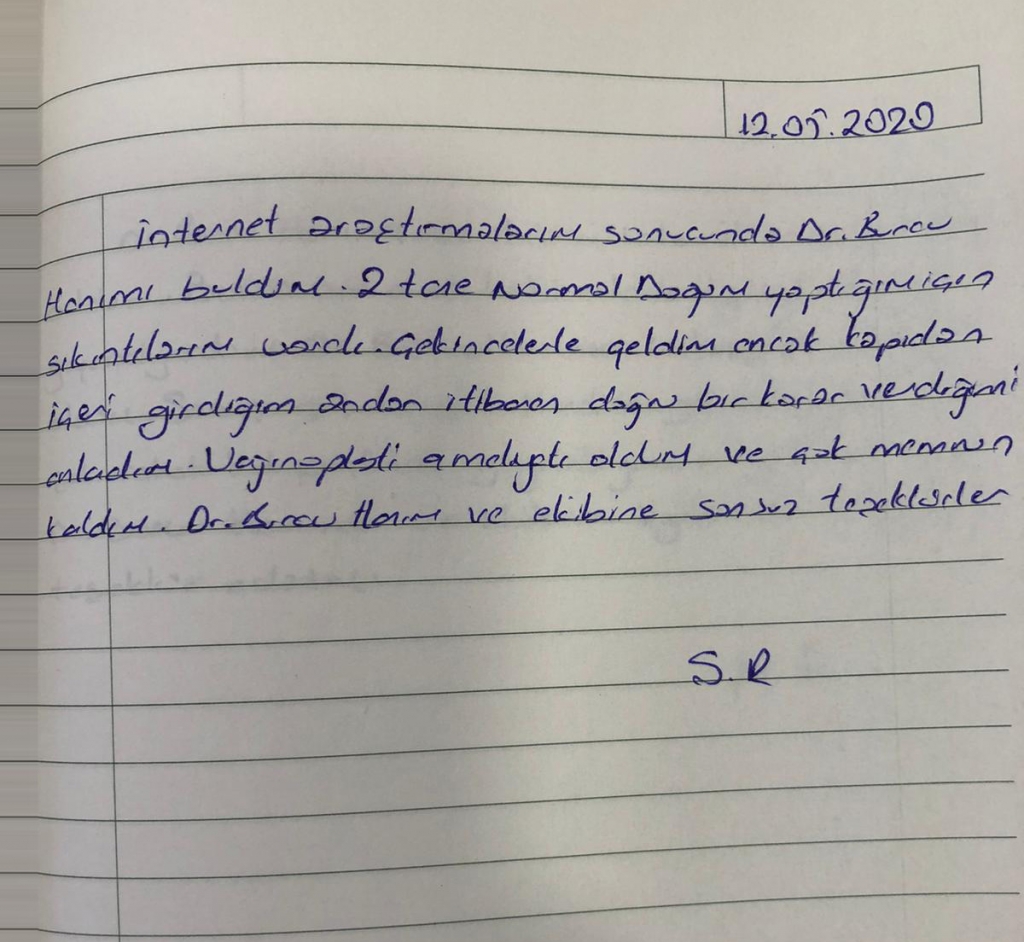 12.05.2020
internet araştırmalarım sonucunda Dr. Burcu
Hanımı buldum. 2 tane Normal Doğum yaptığım için
sıkıntılarım vardı. Çekincelerle geldim ancak kapıdan
içeri girdiğim andan itibaren doğru bir karar verdiğimi
anladım. Vaginoplasti ameliyatı oldum ve çok memnun
kaldım. Dr. Burcu Hanım ve ekibine sonsuz teşekkürler
S.R